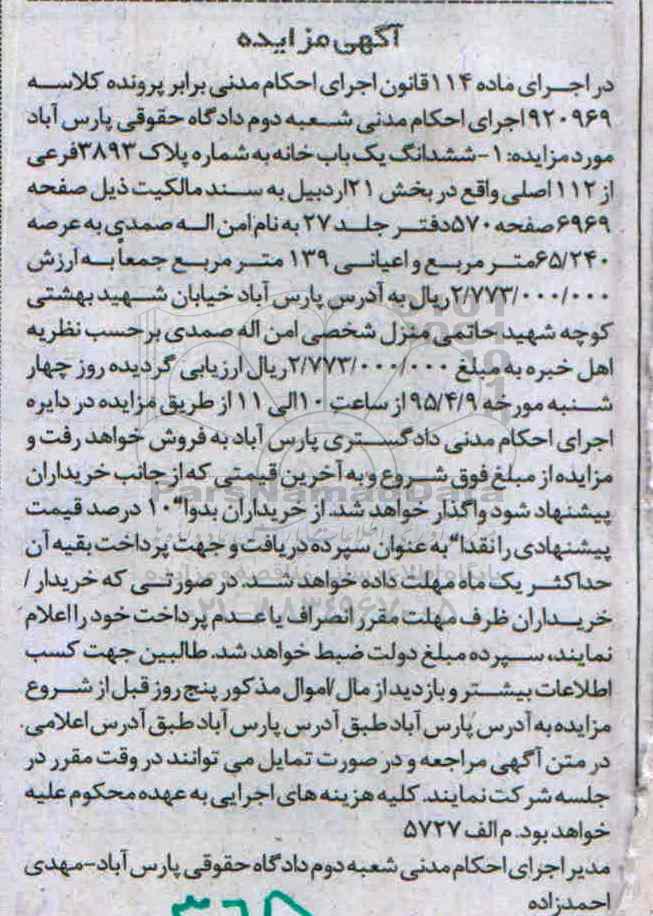 آگهی مزایده
در اجرای ماده ۱۱۴ قانون اجرای احکام مدنی برابر پرونده کلاسه
۹۲۰۹۶۹ اجرای احکام مدنی شعبه دوم دادگاه حقوقی پارس آباد
مورد مزایده: ۱- ششدانگ یک باب خانه به شماره پلاک ۳۸۹۳ فرعی
از ۱۱۲ اصلی واقع در بخش ۲۱ اردبیل به سند مالکیت ذیل صفحه
۶۹۶۹ صفحه ۵۷۰ دفتر جلد ۲۷ به نام امن اله صمدی به عرصه
۶۵/۲۴۰ متر مربع و اعیانی ۱۳۹ متر مربع جمعاً به ارزش
۲/۷۷۳/۰۰۰/۰۰۰ ریال به آدرس پارس آباد خیابان شهید بهشتی
کوچه شهید حاتمی منزل شخصی امن اله صمدی بر حسب نظریه
اهل خبره به مبلغ ۲/۷۷۳/۰۰۰/۰۰۰ ریال ارزیابی گردیده روز چهار
شنبه مورخه ۹۵/۴/۹ از ساعت ۱۰ الی ۱۱ از طریق مزایده در دایره
اجرای احکام مدنی دادگستری پارس آباد به فروش خواهد رفت و
مزایده از مبلغ فوق شروع و به آخرین قیمتی که از جانب خریداران
پیشنهاد شود واگذار خواهد شد. از خریداران بدوا" ۱۰ درصد قیمت
پیشنهادی را نقدا" به عنوان سپرده دریافت و جهت پرداخت بقیه آن
حداکثر یک ماه مهلت داده خواهد شد. در صورتی که خریدار /
خریداران ظرف مهلت مقرر انصراف یا عدم پرداخت خود را اعلام
نمایند، سپرده مبلغ دولت ضبط خواهد شد. طالبین جهت کسب
اطلاعات بیشتر و بازدید از مال /اموال مذکور پنج روز قبل از شروع
مزایده به آدرس پارس آباد طبق آدرس پارس آباد طبق آدرس اعلامی.
در متن آگهی مراجعه و در صورت تمایل می توانند در وقت مقرر در
جلسه شرکت نمایند. کلیه هزینه های اجرایی به عهده محکوم علیه
خواهد بود. م الف ۵۷۲۷
مدیر اجرای احکام مدنی شعبه دوم دادگاه حقوقی پارس آباد-مهدی
احمدزاده
ParsNamadData